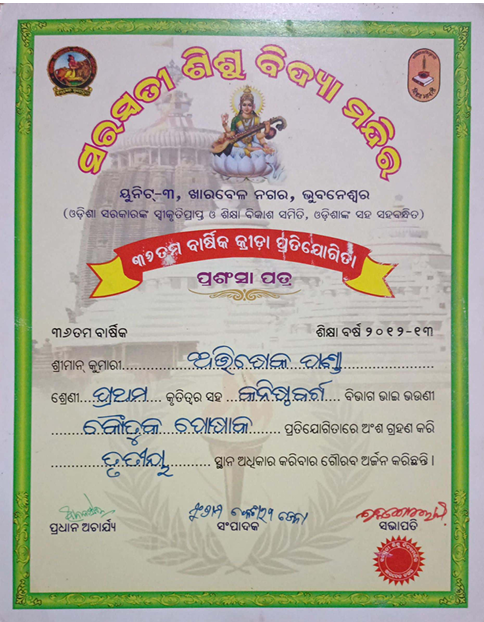 ସରସ୍ୱତୀ ଶିଶୁ ବିଦ୍ୟା ମନ୍ଦିର
ୟୁନିଟ୍-୩, ଖାରବେଳ ନଗର, ଭୁବନେଶ୍ୱର
(ଓଡ଼ିଶା ସରକାରଙ୍କ ସ୍ୱୀକୃତିପ୍ରାପ୍ତ ଓ ଶିକ୍ଷା ବିକାଶ ସମିତି, ଓଡ଼ିଶାଙ୍କ ସହ ସହବନ୍ଧିତ)
୩୬ତମ ବାର୍ଷିକ କ୍ରୀଡ଼ା ପ୍ରତିଯୋଗିତା
ପ୍ରଶଂସା ପତ୍ର
୩୬ତମ ବାର୍ଷିକ ଶିକ୍ଷା ବର୍ଷ ୨୦୧୨-୧୩
ଶ୍ରୀମାନ୍ କୁମାରୀ..... ଅଭିଶେକ ପଣ୍ଡା
ଶ୍ରେଣୀ..... ପ୍ରଥମ ..... କୃତିତ୍ୱର ସହ ..... କନିଷ୍ଠବର୍ଗ ..... ବିଭାଗ ଭାଇ ଭଉଣୀ
..... କୌତୁକ ପୋଷାକ ..... ପ୍ରତିଯୋଗିତାରେ ଅଂଶ ଗ୍ରହଣ କରି
..... ତୃତୀୟ ..... ସ୍ଥାନ ଅଧିକାର କରିବାର ଗୌରବ ଅର୍ଜନ କରିଛନ୍ତି ।
ପ୍ରଧାନ ଆଚାର୍ଯ୍ୟ ସଂପାଦକ ସଭାପତି